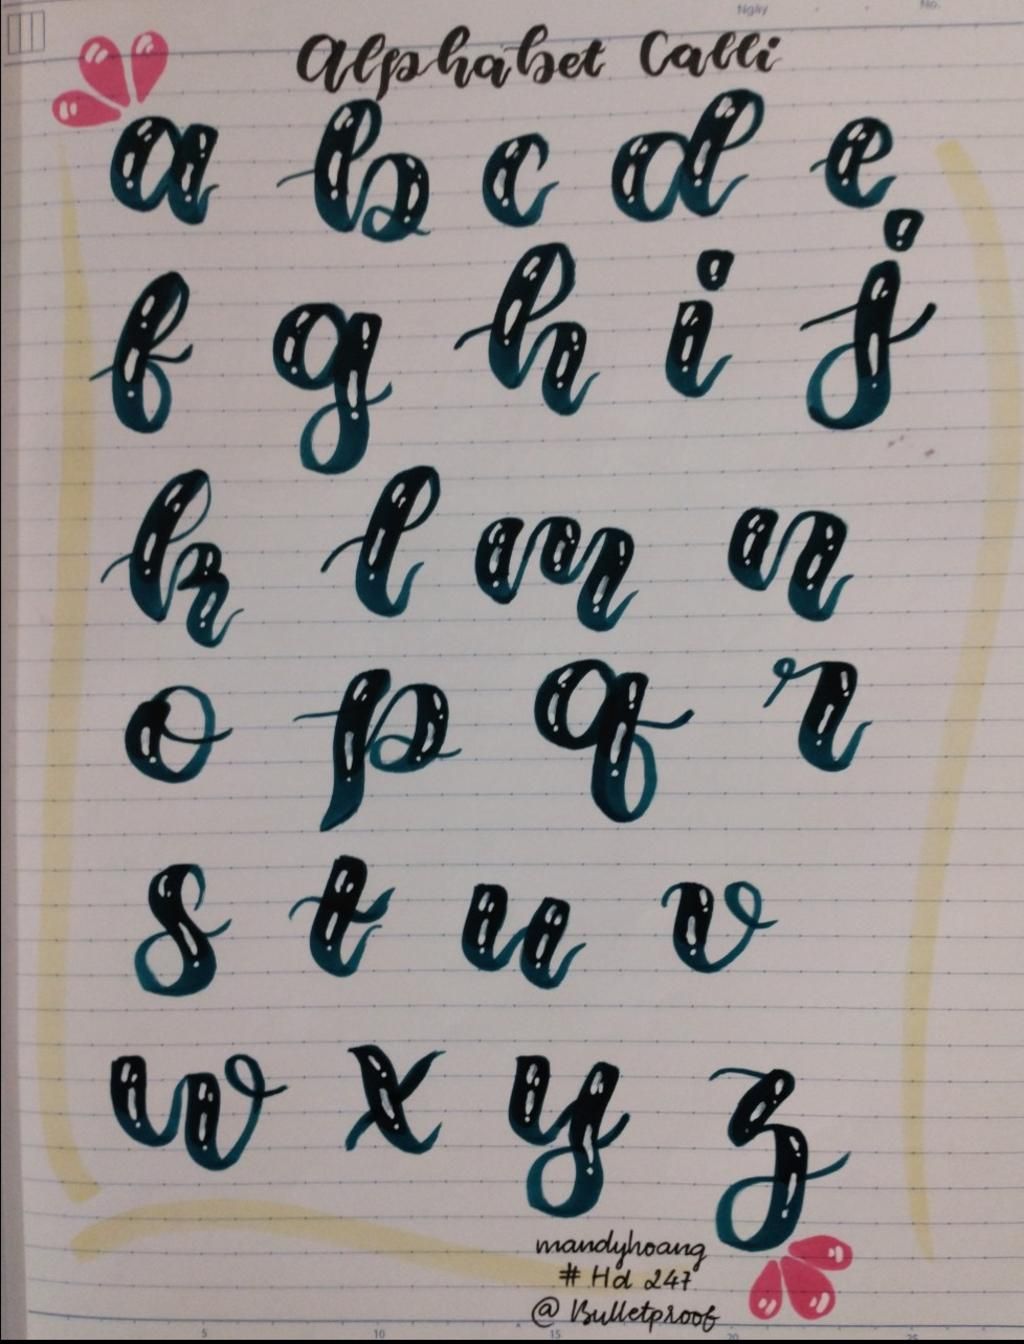 Ngày No.
Alphabet Calli
a b c d e
f g h i j
k l m n
o p q r
s t u v
w x y z
mandyhoang
# Hd 247
@ Bulletproof
5 10 15 20 25